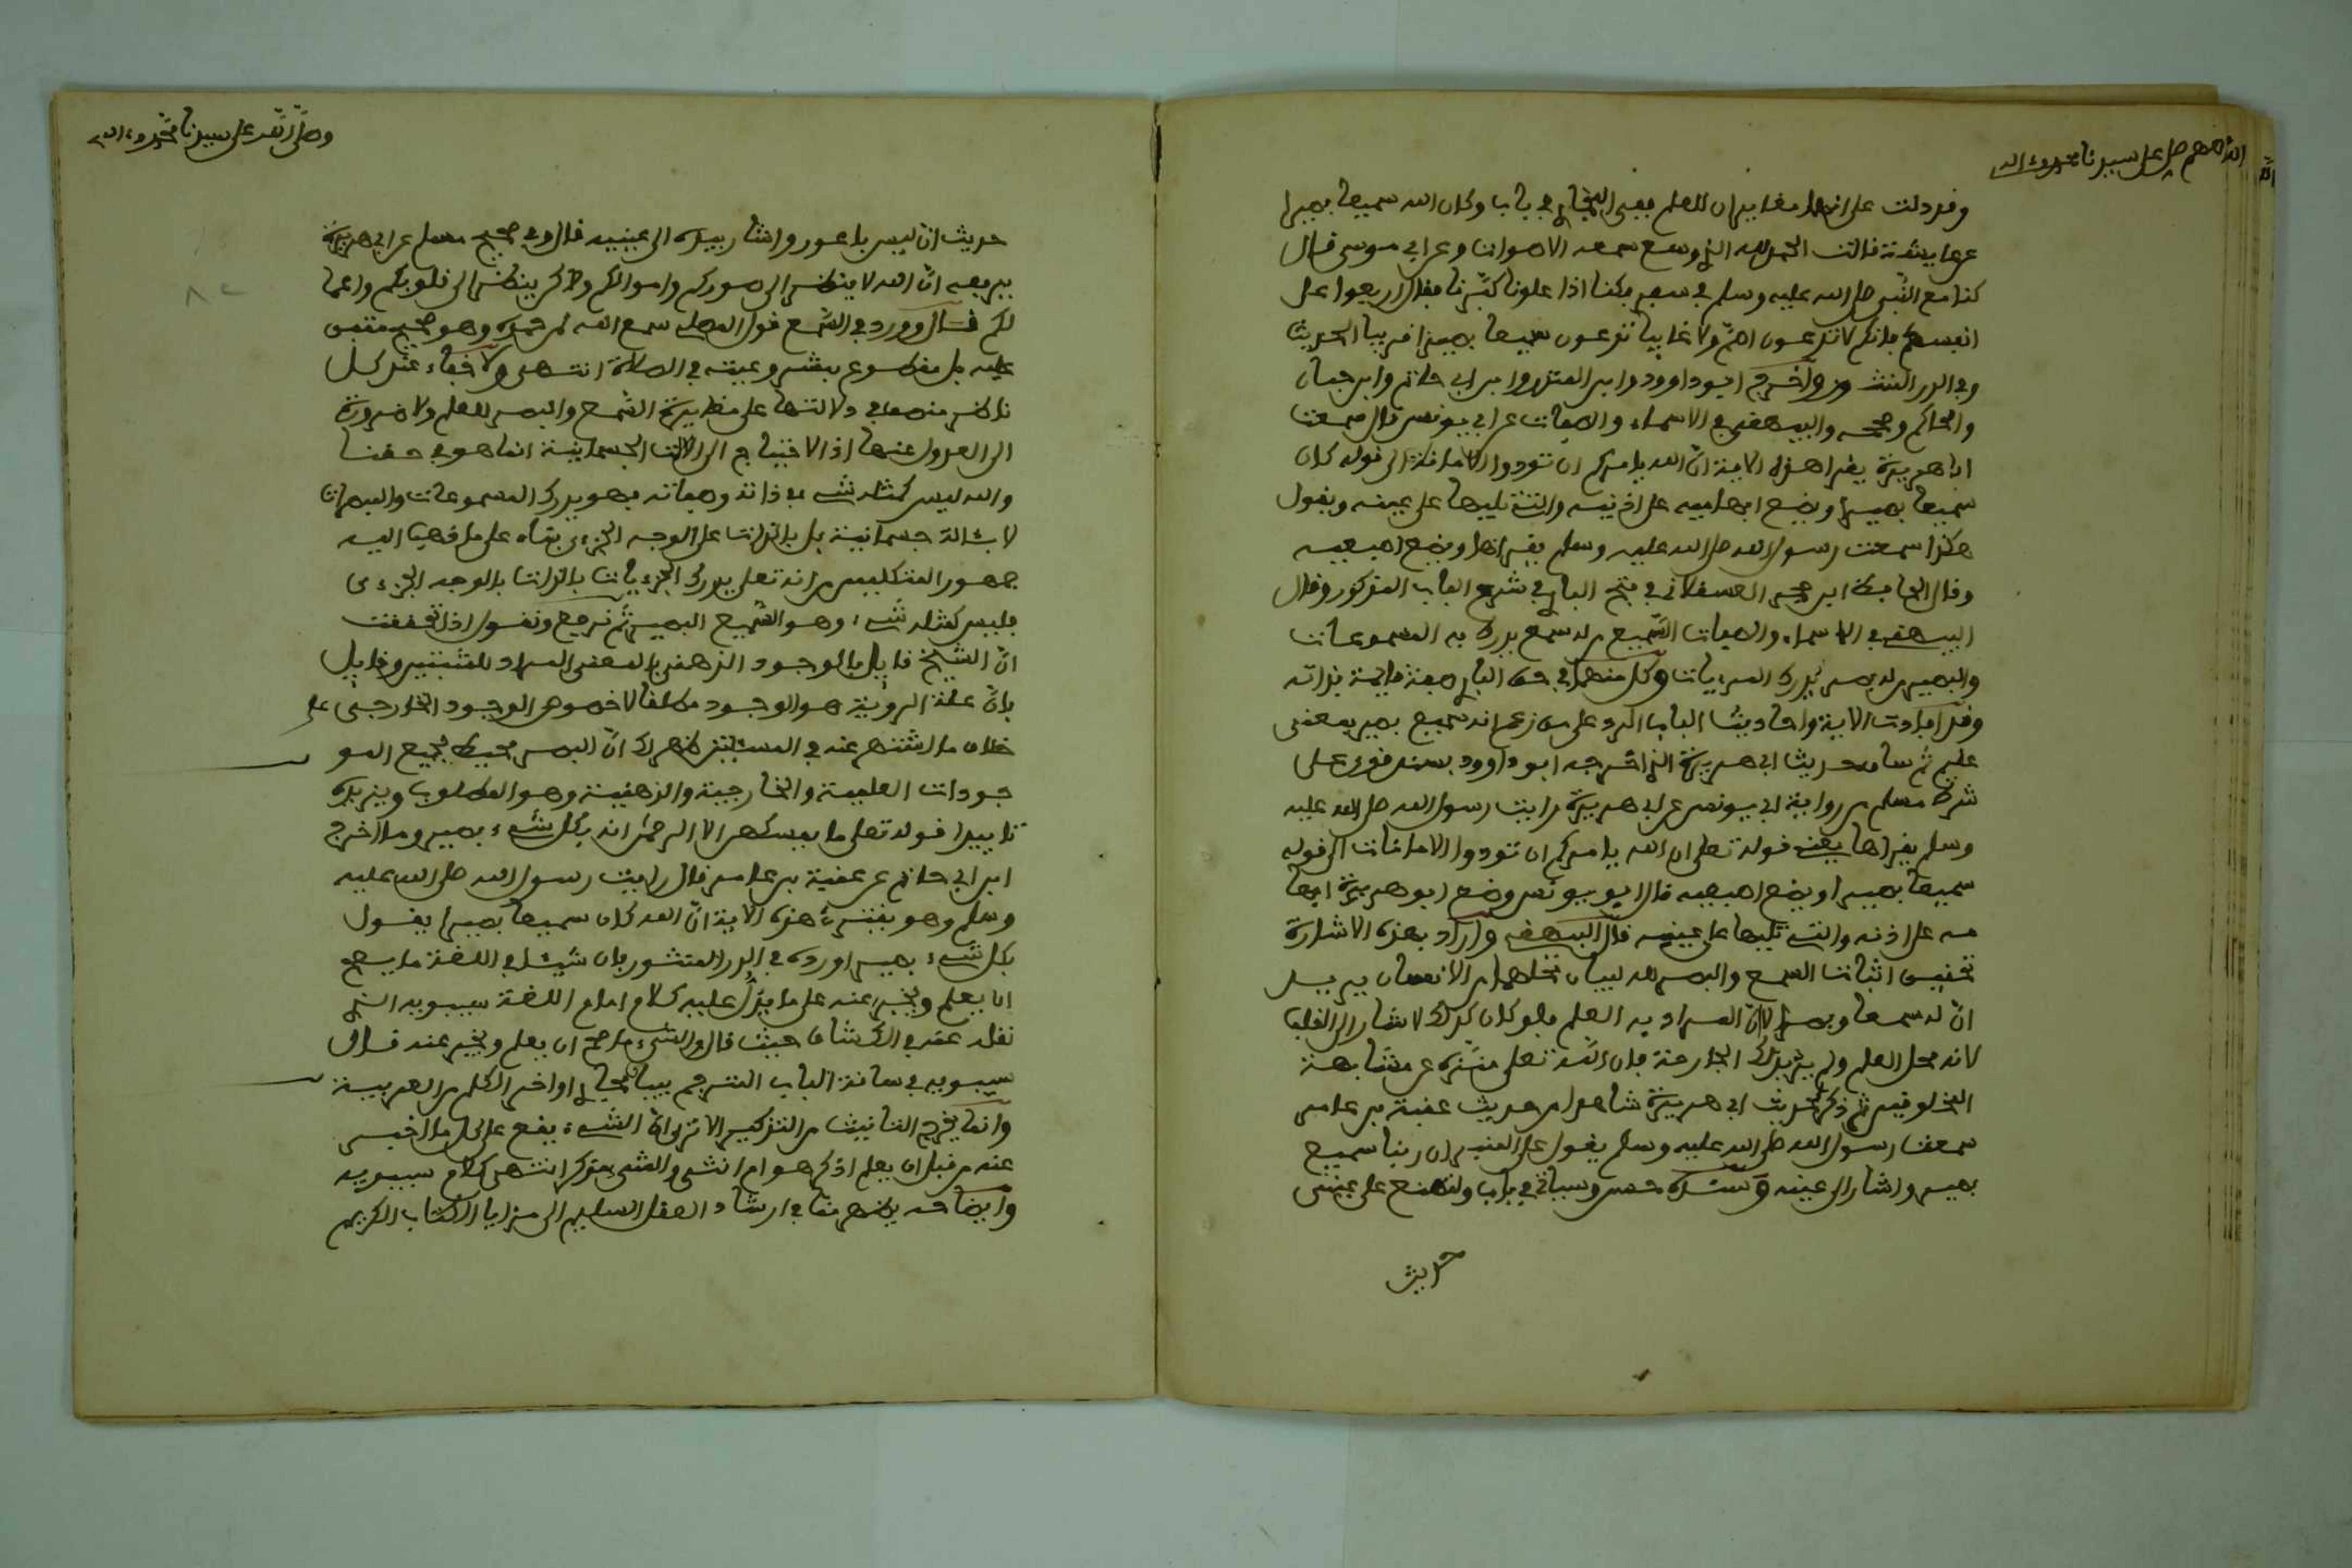 اللهم صل على سيدنا محمد وءاله
وقد دلت على انهما مغايران للعلم ففي البخاري في باب وكان الله سميعا بصيرا
عن عايشة قالت الحمد لله الذي وسع سمعه الاصوات وعن ابي موسى قال
كنا مع النبي صلى الله عليه وسلم في سفر فكنا اذا علونا كبّرنا فقال اربعوا على
انفسكم فانكم لا تدعون اصمّ ولا غايبا تدعون سميعا بصيرا قريبا الحديث
وفي الدر المنثور واخرج ابوداوود وابن المنذر وابن ابي حاتم وابن حبان
والحاكم وصححه والبيهقي في الاسماء والصفات عن ابي يونس قال سمعت
ابا هريرة يقرا هذه الاية انّ الله يامركم ان تودوا الامانة الى قوله كان
سميعا بصيرا ويضع ابهاميه على اذنيه والتي تليها على عينه ويقول
هكذا سمعت رسول الله صلى الله عليه وسلم يقراها ويضع اصبعيه
وقال الحافظ ابن حجر العسقلاني في فتح الباري في شرح الباب المذكور وقال
البيهقي في الاسماء والصفات السّميع من له سمع يدرك به المسموعات
والبصير من له بصر يدرك المرءيات وكل منهما في حق الباري صفة قايمة بذاته
وقد افادت الاية واحاديث الباب الرد على من زعم انه سميع بصير بمعنى
عليم ثم ساق حديث ابي هريرة الذي اخرجه ابو داوود بسند قوي على
شرط مسلم من رواية ابي يونس عن ابي هريرة رايت رسول الله صلى الله عليه
وسلم يقراها يعني قوله تعلى ان الله يامركم ان تودوا الامانات الى قوله
سميعا بصيرا ويضع اصبعيه قال ابو يونس وضع ابو هريرة ابها
مه على اذنه والتي تليها على عينه قال البيهقي واراد بهذه الاشارة
تحقيق اثبات السمع والبصر لله لبيان محلهما من الانسان يريد
انّ له سمعا وبصرا لا انّ المراد به العلم فلو كان كذلك لاشار الى القلب
لانه محل العلم ولم يرد بذلك الجارحة فان الله تعلى منزّه عن مشابهة
المخلوقين ثم ذكر لحديث ابي هريرة شاهدا من حديث عقبة بن عامر
سمعت رسول الله صلى الله عليه وسلم يقول على المنبر ان ربنا سميع
بصير واشار الى عينه وسنده حسن وسياتي في باب ولتصنع على عيني
حديث
وصلّى الله على سيدنا محمد وءاله
حديث ان ليس باعور واشار بيده الى عينيه قال وفي صحيح مسلم عن ابي هريرة
برفعه انّ الله لا ينظر الى صوركم واموالكم ولاكن ينظر الى قلوبكم واعما
لكم قال وورد في السّمع قول المصلي سمع الله لمن حمده وهو صحيح متفق
عليه بل مقطوع بمشروعيته في الصلاة انتهى ولا خفاء عند كل
ناظر منصف في دلالتها على مغايرة السّمع والبصر للعلم ولا ضرورة
الى العدول عنها اذ الاحتياج الى الالات الجسمانية انما هو في حقنا
والله ليس كمثله شيء في ذاته وصفاته فهو يدرك المسموعات والمبصرات
لا بئالة جسمانية بل بالذات على الوجه الجزءي بناء على ما ذهب اليه
جمهور المتكلمين من انه تعلى يدرك الجزءيات بالذات بالوجه الجزءي
فليس كمثله شيء وهو السّميع البصير ثم نرجع ونقول اذا تحققت
انّ الشيخ قايل بالوجود الذهني بالمعنى المراد للمثبتين وقايل
بانّ علة الرؤية هو الوجود مطلقا لا خصوص الوجود الخارجي على
خلاف ما اشتهر عنه في المسئلتين ظهر لك انّ البصر محيط بجميع المو
جودات العلمية والخارجية والذهنية وهو المطلوب ويزيده
تاييدا قوله تعلى ما يمسكهن الا الرحمن انه بكل شيء بصير وما اخرج
ابن ابي حاتم عن عقبة بن عامر قال رايت رسول الله صلى الله عليه
وسلم وهو يقترئ هذه الاية انّ الله كان سميعا بصيرا يقول
بكل شيء بصير اورده في الدر المنثور فان شيئا في اللغة ما يصح
ان يعلم ويخبر عنه على ما يدّل عليه كلام امام اللغة سيبويه الذي
نقله عنه في الكشاف حيث قال والشيء ما صح ان يعلم ويخبر عنه قال
سيبويه في ساقة الباب المترجم بباب مجاري اواخر الكلم من العربية
وانما يخرج التانيث من التذكير الا ترى انّ الشيء يقع على كل ما اخبر
عنه من قبل ان يعلم اذكر هو ام انثى والشيء مذكر انتهى كلام سيبويه
وايضاحه يظهر مما في ارشاد العقل السليم الى مزايا الكتاب الكريم